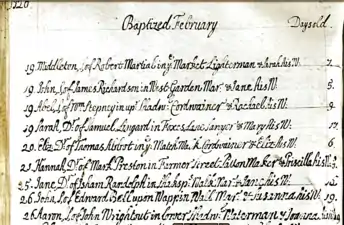 Baptized February Days old.
19 Middleton, S. of Robert Martial in ye Market Lighterman & Sarah his W. 7
19 John, S. of James Richardson in West Garden Mar. & Jane his W. 5.
19 Abel, S. of Wm Stepney in up Shadw. Cordwainer & Rachael his W. 9
19 Sarah, Dr. of Samuel Lingard in Foxes Lane, & Mary his W. 17
20. Eliz. Dr. of Thomas in ye Walk Cordwainer & Eliz. his W. 6
21 Hannah, Dr. of Mark Preston in Farmer Street, & Priscilla his W.
25 Jane, Dr. of Isham Randolph in Shakesp. Walk Mar. & Jane his W.
26 John, S. of Edward Bell upon Wappin Wall Mar. & Susanna his W. 19.
26 Aaron, S. of John in lower Shadw. Waterman & his W.